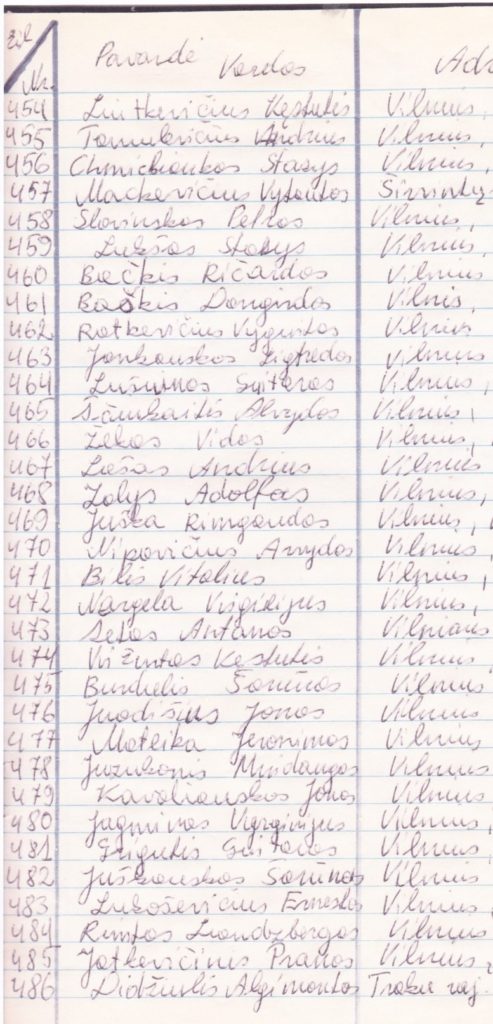 Eil Nr. Pavardė Vardas Adr
454 Liutkevičius Kęstutis Vilnius,
455 Tamulevičius Andrius Vilnius,
456 Stasys Vilnius,
457 Mackevičius Vytautas Širvintų
458 Slavinskas Petras Vilnius,
459 Lukšas Stasys Vilnius,
460 Bačkis Ričardas Vilnius
461 Bačkis Daugirdas Vilnius,
462 Ratkevičius Vygantas Vilnius
463 Jankauskas Zigfredas Vilnius
464 Vilnius,
465 Arvydas Vilnius,
466 Žekas Vidas Vilnius,
467 Lašas Andrius Vilnius
468 Zalys Adolfas Vilnius,
469 Juška Rimgaudas Vilnius,
470 Arvydas Vilnius,
471 Bilis Vitalius Vilnius,
472 Nargela Virginijus Vilnius,
473 Antanas Vilniaus
474 Vižintas Kęstutis Vilnius
475 Šarūnas Vilnius
476 Juodišius Jonas Vilnius
477 Mateika Jeronimas Vilnius
478 Juzukonis Mindaugas Vilnius
479 Kavaliauskas Jonas Vilnius
480 Jagminas Virginijus Vilnius,
481 Grigutis Gintaras Vilnius,
482 Juškauskas Šarūnas Vilnius
483 Lukoševičius Ernestas Vilnius,
484 Rimtas Vilnius
485 Jatkevičius Pranas Vilnius,
486 Didžiulis Algimantas Trakų raj.